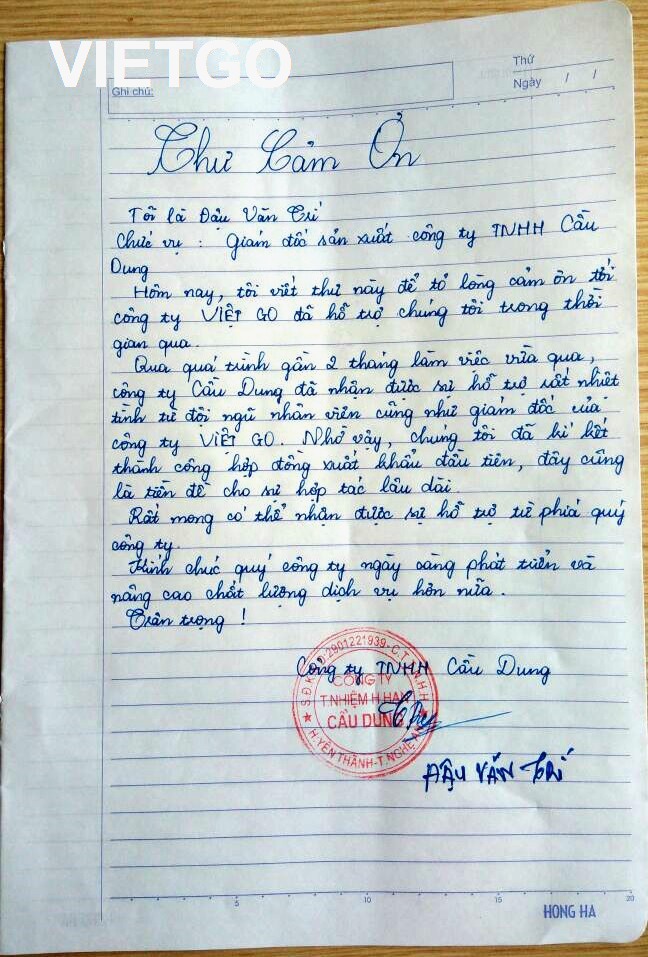 VIETGO
Thứ
Ngày / /
Ghi chú:
Thư Cảm Ơn
Tôi là Đậu Văn Trí
Chức vụ : Giám đốc sản xuất công ty TNHH Cầu
Dung
Hôm nay, tôi viết thư này để tỏ lòng cảm ơn tới
công ty VIỆT GO đã hỗ trợ chúng tôi trong thời
gian qua.
Qua quá trình gần 2 tháng làm việc vừa qua,
công ty Cầu Dung đã nhận được sự hỗ trợ rất nhiệt
tình từ đội ngũ nhân viên cũng như giám đốc của
công ty VIỆT GO. Nhờ vậy, chúng tôi đã kí kết
thành công hợp đồng xuất khẩu đầu tiên, đây cũng
là tiền đề cho sự hợp tác lâu dài.
Rất mong có thể nhận được sự hỗ trợ từ phía quý
công ty.
Kính chúc quý công ty ngày càng phát triển và
nâng cao chất lượng dịch vụ hơn nữa.
Trân trọng !
Công ty TNHH Cầu Dung
S.Đ.K.D:2901221939-C.T.T.N.H.H
CÔNG TY
T.NHIỆM H.HẠN
CẦU DUNG
H.YÊN THÀNH-T.NGHỆ
ĐẬU VĂN TRÍ
5 10 15 20
HONG HA